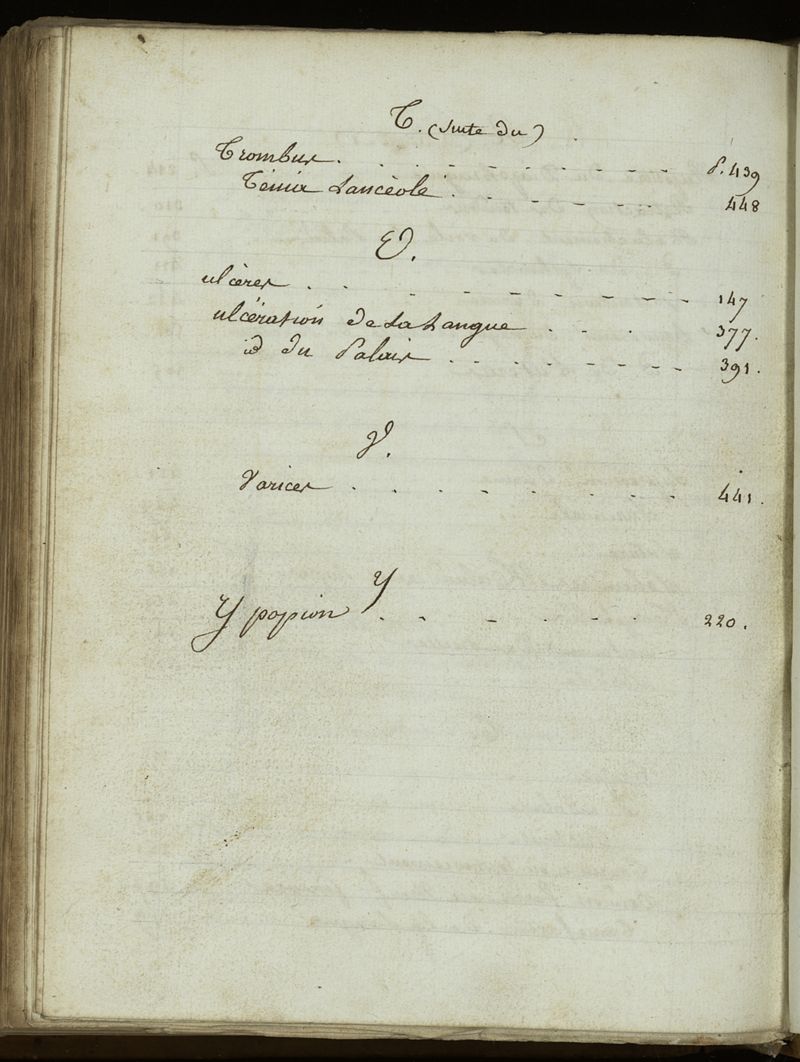 T. (suite du)
Trombus . . . - - - - - - - P. 439
Ténia Lancéolé . . - - - - - 448
U.
ulcères . . . - - - - - - - - 147
ulcération de La Langue . . . . 377.
id du Palais . . . . - - - - 391.
V.
Varices . . . - - - - - - 441.
Y
Ypopion . - - - - - - 220.